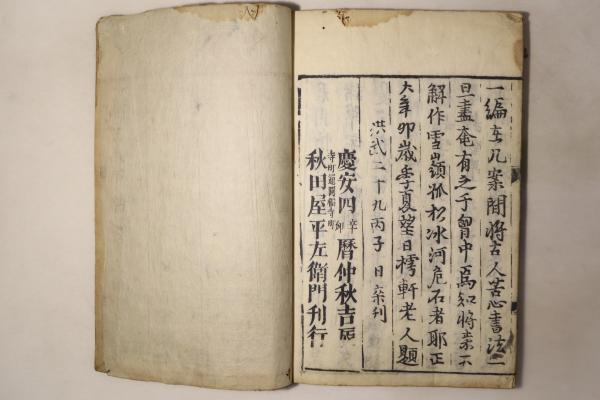 一編在几案間將古人苦心書法一
旦盡奄有之于胷中焉知將來不
解作雪嶺孤松冰河危石者耶正
大辛卯歲季夏望日樗軒老人題
洪武二十九丙子 日来刊
慶安四辛卯曆仲秋吉辰
寺町通圓福寺町
秋田屋平左衛門刊行